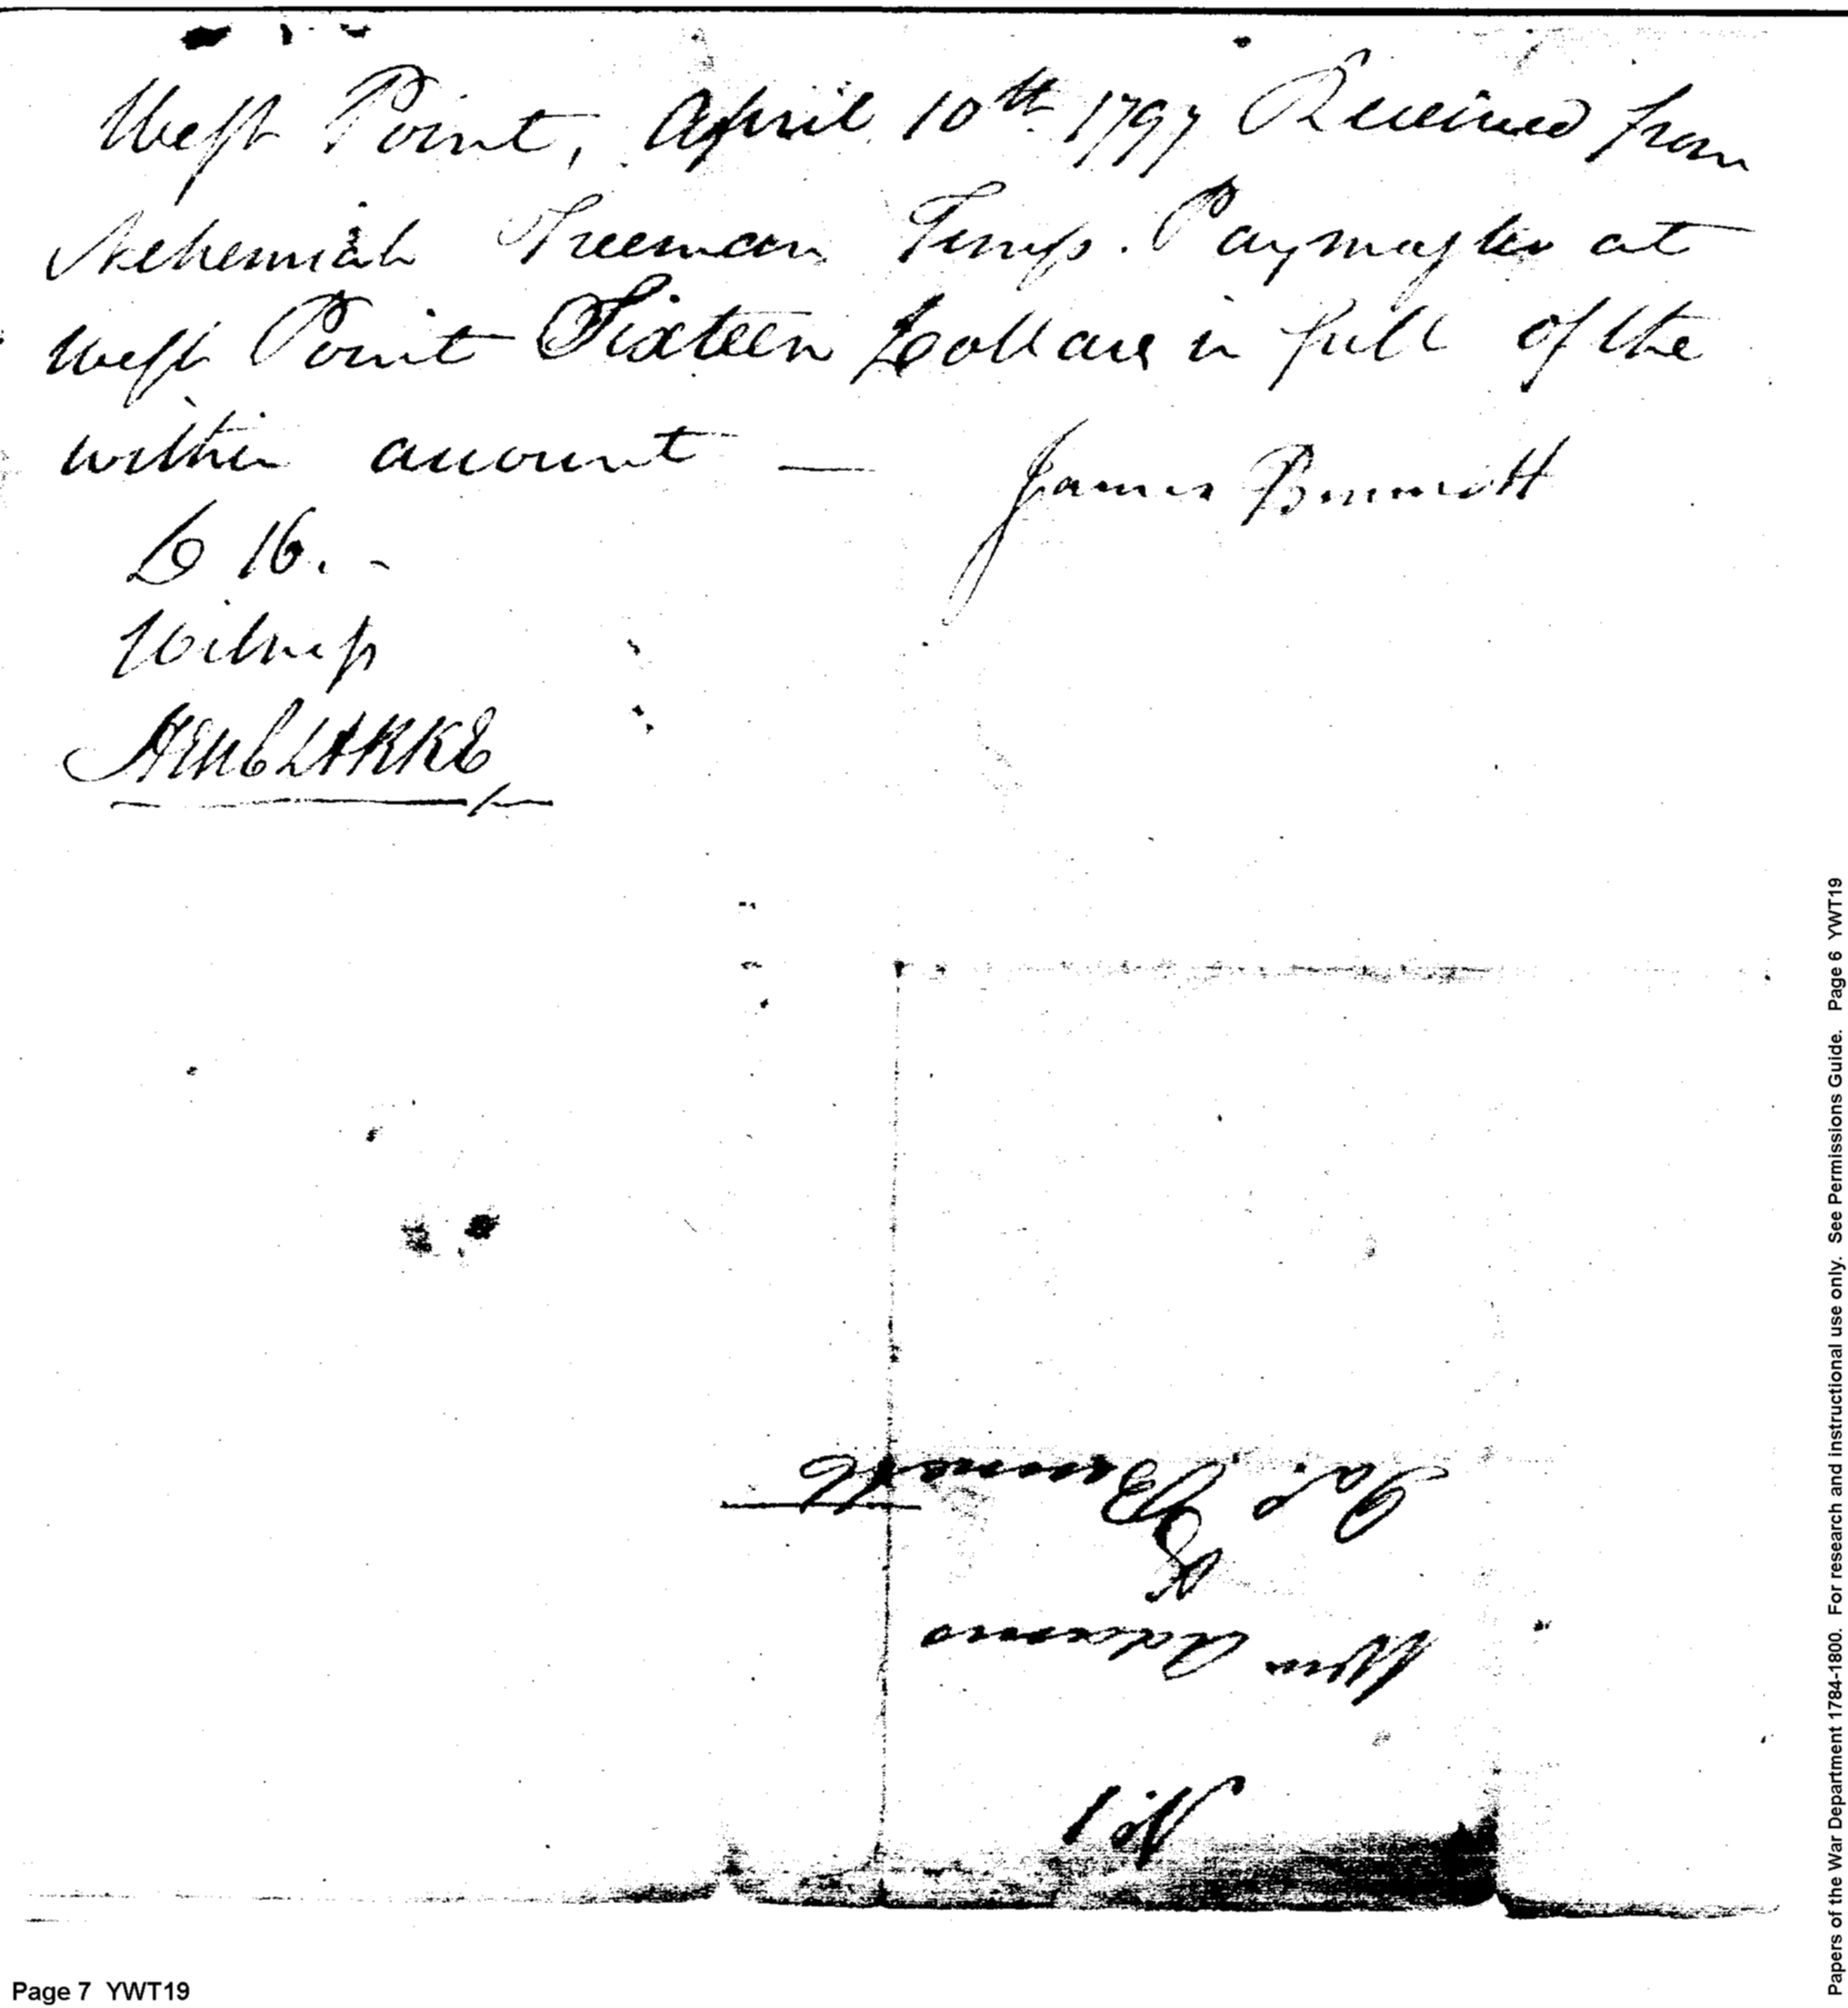 West Point, April 10th 1797 Received from
Nehemiah Freeman Temp. Paymaster at
West Point Sixteen Dollars in full of the
within account —
James Bennett
D 16. -
Witness
CLARKE
No. 1
Wm Adams
&
Jas. Bennett
Page 7 YWT19
Papers of the War Department 1784-1800. For research and instructional use only. See Permissions Guide. Page 6 YWT19